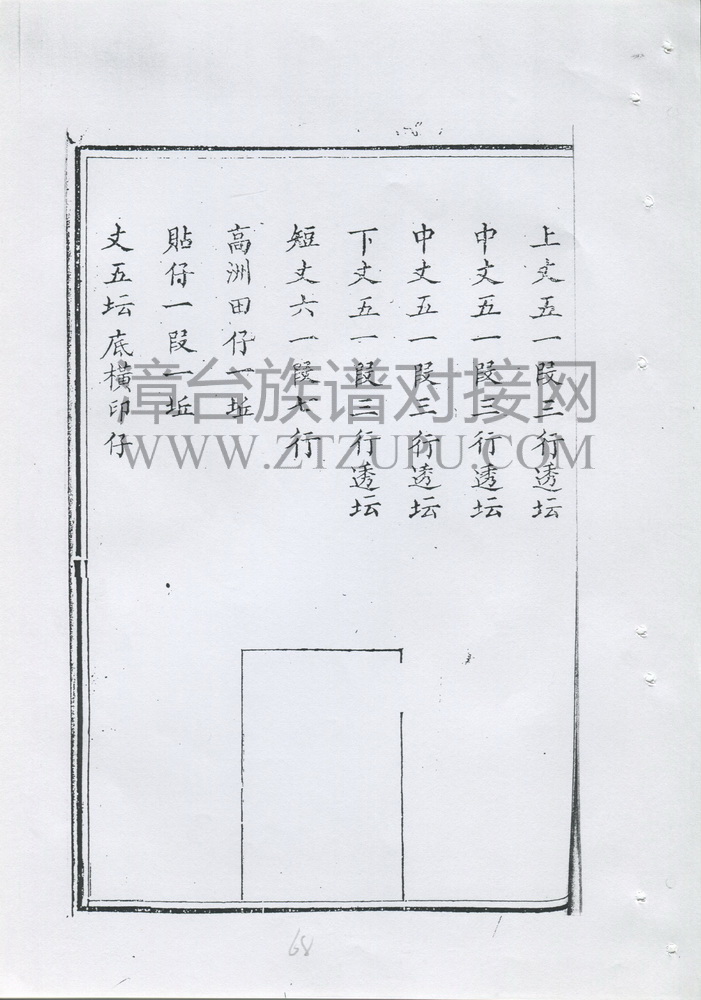 上丈五一段三行透坛
中丈五一段三行透坛
中丈五一段三行透坛
下丈五一段三行透坛
短丈六一段七行
高洲田仔一坵
貼仔一段一坵
丈五坛底横印仔
漳台族谱对接网
WWW.ZTZUPU.COM
68